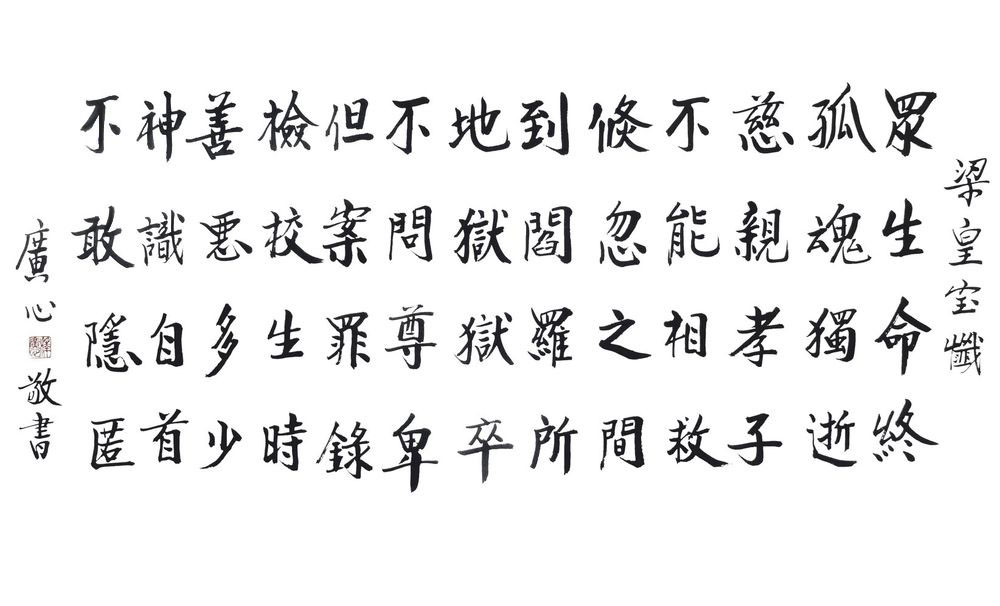 梁皇宝懺
眾生命終
孤魂獨逝
慈親孝子
不能相救
倏忽之間
到閻羅所
地獄獄卒
不問尊卑
但案罪錄
檢校生時
善惡多少
神識自首
不敢隱匿
廣心
敬書